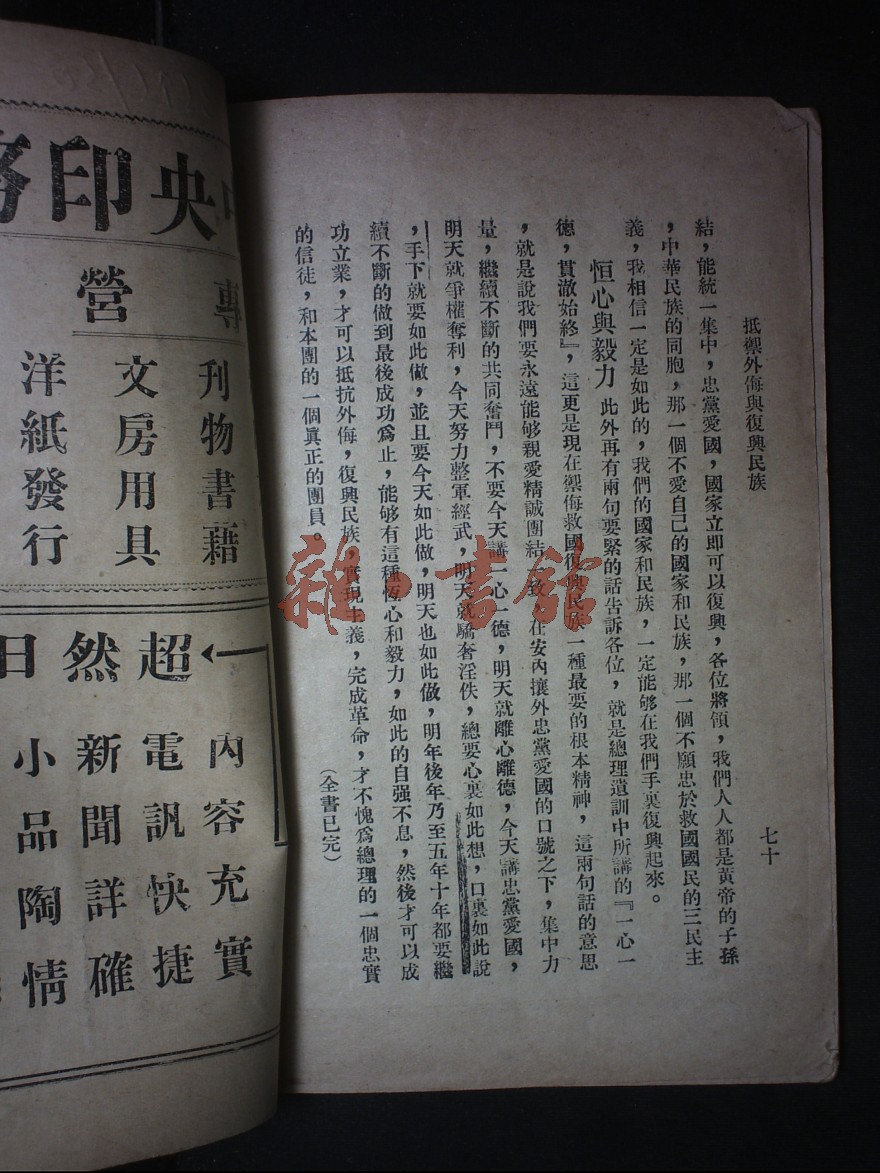 抵禦外侮與復興民族
七十
結，能統一集中，忠黨愛國，國家立即可以復興，各位將領，我們人人都是黃帝的子孫
，中華民族的同胞，那一個不愛自己的國家和民族，那一個不願忠於救國國民的三民主
義，我相信一定是如此的，我們的國家和民族，一定能够在我們手裏復興起來。
恒心與毅力 此外再有兩句要緊的話告訴各位，就是總理遺訓中所講的『一心一
德，貫澈始終』，這更是現在禦侮救國復興民族一種最要的根本精神，這兩句話的意思
，就是說我們要永遠能够親愛精誠團結一致，在安內攘外忠黨愛國的口號之下，集中力
量，繼續不斷的共同奮鬥，不要今天講一心一德，明天就離心離德，今天講忠黨愛國，
明天就爭權奪利，今天努力整軍經武，明天就驕奢淫佚，總要心裏如此想，口裏如此說
，手下就要如此做，並且要今天如此做，明天也如此做，明年後年乃至五年十年都要繼
續不斷的做到最後成功爲止，能够有這種恆心和毅力，如此的自强不息，然後才可以成
功立業，才可以抵抗外侮，復興民族，實現主義，完成革命，才不愧爲總理的一個忠實
的信徒，和本團的一個眞正的團員。
（全書已完）
雜·書館
中央印務
專營
刊物書藉
文房用具
洋紙發行
超然日
內容充實
電訊快捷
新聞詳確
小品陶情